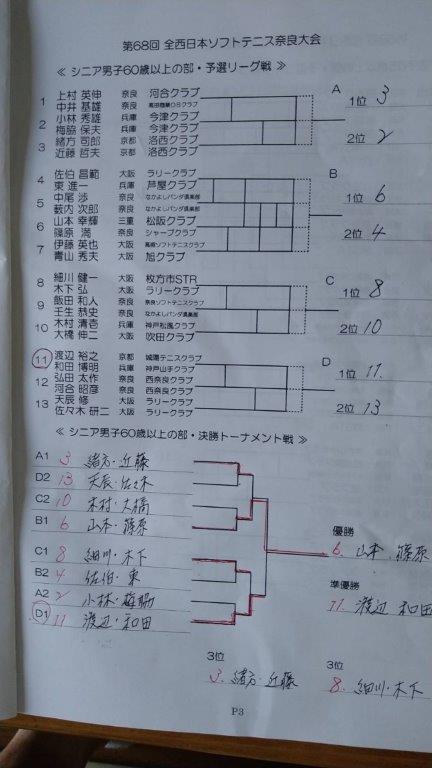 第68回 全西日本ソフトテニス奈良大会
≪ シニア男子60歳以上の部・予選リーグ戦 ≫
A
1 上村 英伸 奈良 河合クラブ
中井 基雄 奈良 高田商業OBクラブ
1位 3
2 小林 秀雄 兵庫 今津クラブ
梅脇 保夫 兵庫 今津クラブ
3 緒方 司郎 京都 洛西クラブ
近藤 哲夫 京都 洛西クラブ
2位 2
B
4 佐伯 昌範 大阪 ラリークラブ
東 進一 兵庫 芦屋クラブ
5 中尾 渉 奈良 なかよしパンダ倶楽部
薮内 次郎 奈良 なかよしパンダ倶楽部
1位 6
6 山本 幸輝 三重 松阪クラブ
篠原 満 奈良 シャープクラブ
7 伊藤 英也 大阪 高槻ソフトテニスクラブ
青山 秀夫 大阪 旭クラブ
2位 4
C
8 細川 健一 大阪 枚方市STR
木下 弘 大阪 ラリークラブ
1位 8
9 飯田 和人 奈良 奈良ソフトテニスクラブ
壬生 恭史 奈良 なかよしパンダ倶楽部
10 木村 清壱 兵庫 神戸松風クラブ
大橋 伸二 大阪 吹田クラブ
2位 10
D
11 渡辺 裕之 京都 城陽テニスクラブ
和田 博明 兵庫 神戸山手クラブ
1位 11
12 弘田 太作 奈良 西奈良クラブ
河合 昭彦 奈良 西奈良クラブ
13 天辰 修 大阪 ラリークラブ
佐々木 研二 大阪 ラリークラブ
2位 13
≪ シニア男子60歳以上の部・決勝トーナメント戦 ≫
A1 3 緒方・近藤
D2 13 天辰・佐々木
C2 10 木村・大橋
B1 6 山本・篠原
C1 8 細川・木下
B2 4 佐伯・東
A2 2 小林・梅脇
D1 11 渡辺・和田
優勝
6. 山本、篠原
準優勝
11 渡辺 和田
3位
3. 緒方・近藤
3位
8. 細川・木下
P3